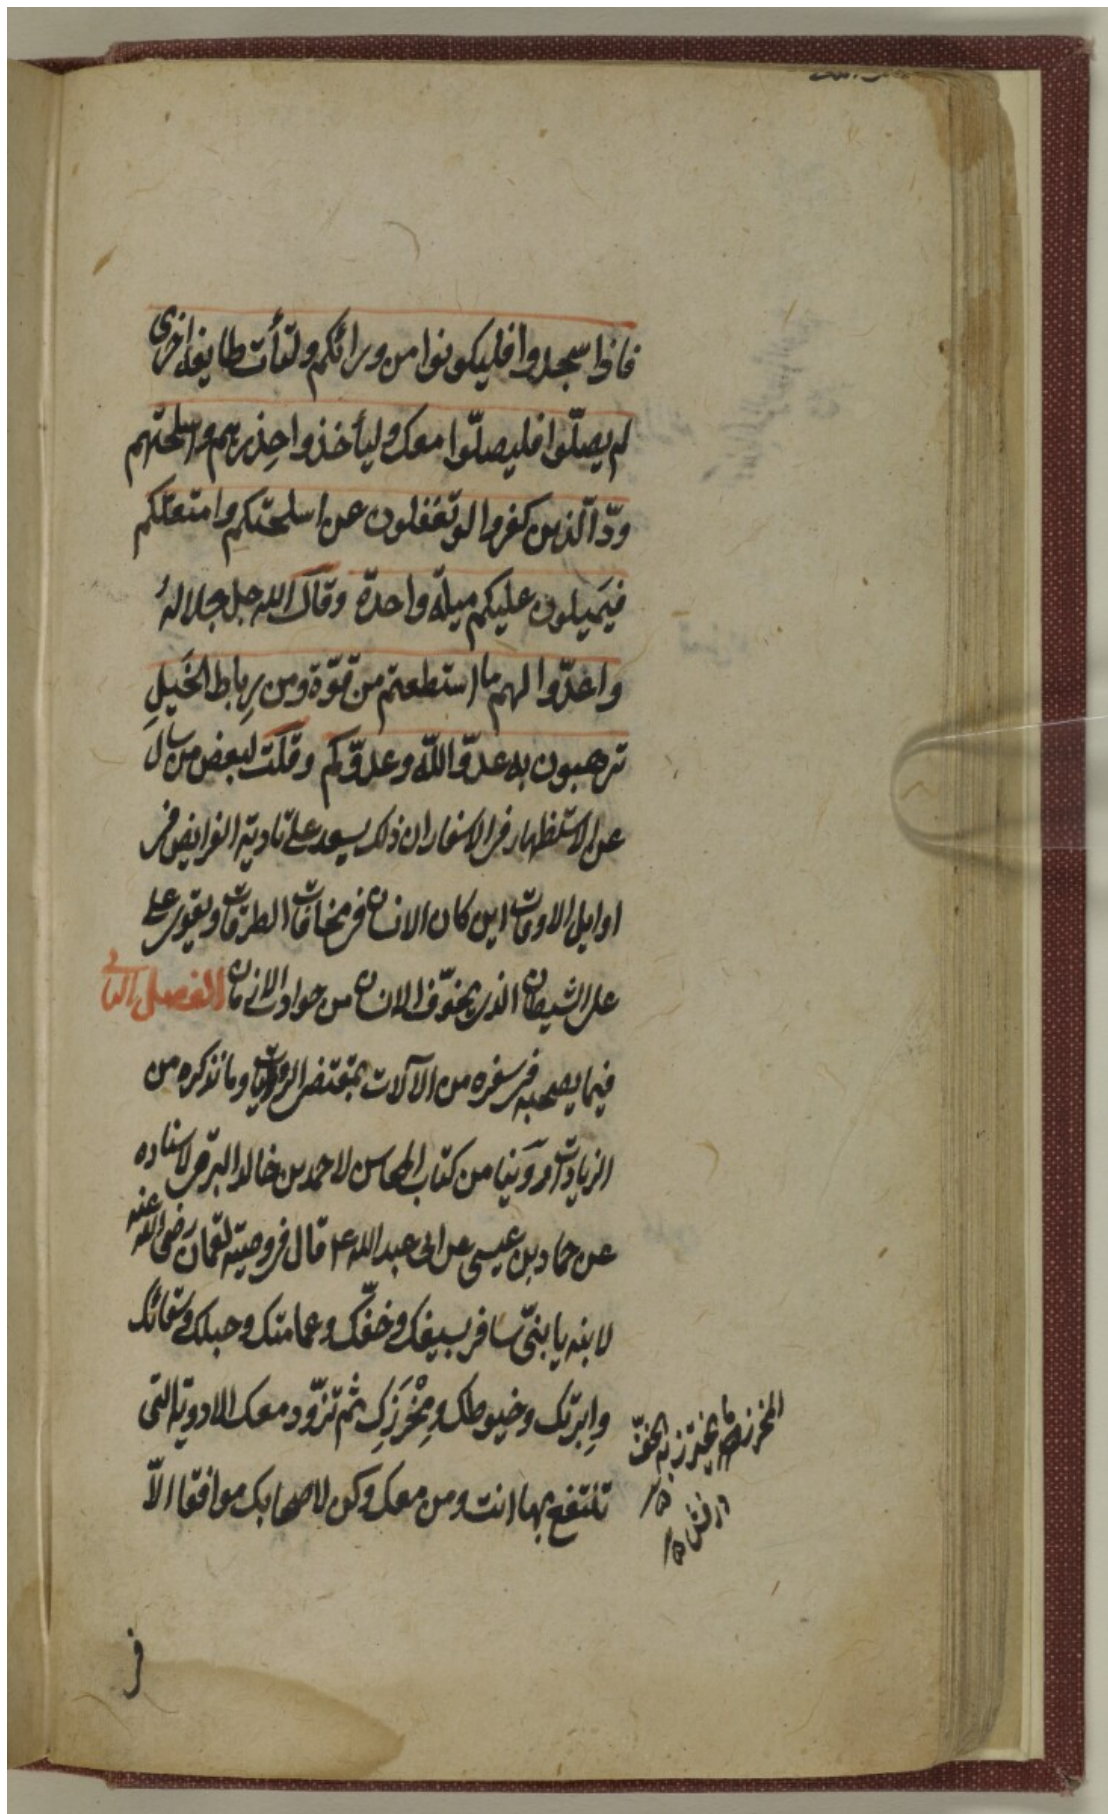 فاذا سجدوا فليكونوا من ورائكم ولتأت طايفة اخرى
لم يصلّوا فليصلّوا معك وليأخذوا حِذرهم واسلحتهم
ودّ الّذين كفروا لو تغفلون عن اسلحتكم وامتعتكم
فيَميلون عليكم ميلة واحدة وقال الله جل جلالهُ
واعدّوا لهم ما استطعتم من قوّة ومن رِباط الخَيلِ
ترهبون به عدوّ اللّه وعدوّكم وقلت لبعض من سأل
عن الاستظهار فى الاسفار ان ذلك يسعد على تادية الفرايض فى
اوايل الاوقات اين كان الانسان فى مخافات الطرقات ويقوى على
على الشيطان الذى يخوّف الانسان من حوادث الازمان الفصل الثانى
فيما يصحبه فى سفره من الآلات بمقتضى الروايات وما نذكره من
الزيادات روَينا من كتاب المحاسن لاحمد بن خالد البرقى لاسناده
عن حماد بن عيسى عن ابى عبد الله ع قال فى وصية لقمان رضى الله عنه
لابنه يا بنىّ سافر بسيفك وخفّك وعمامتك وحبلك وسقائك
وإبرتك وخيوطك ومِخْرَزِك ثم تزّود معك الادوية التى
تنتفع بها انت ومن معك وكن لاصحابك موافقا الّا
المخرز ما يخرز به الخفّ
درفش
فى